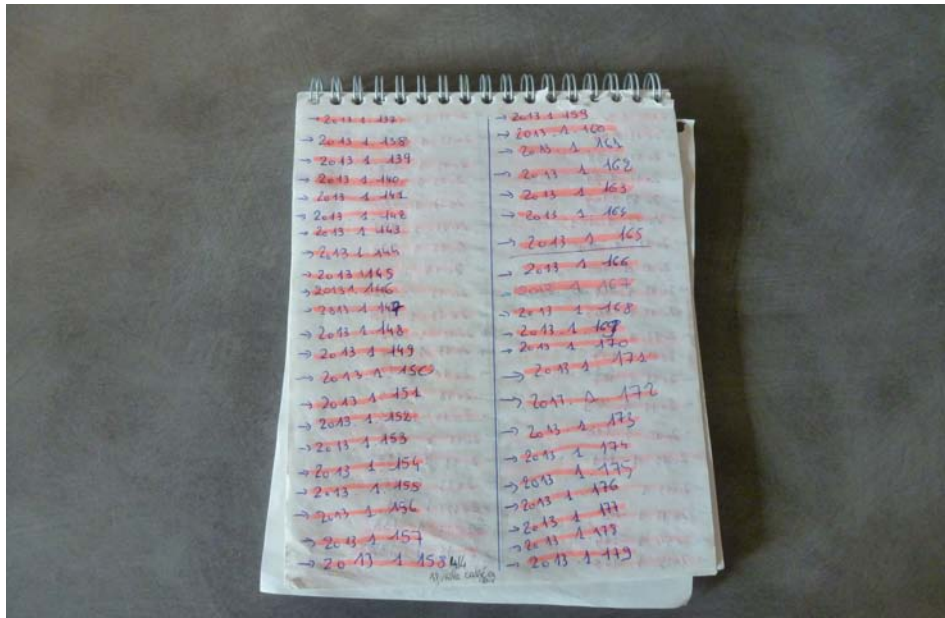 → 2013 1 137
→ 2013 1 138
→ 2013 1 139
→ 2013 1 140
→ 2013 1 141
→ 2013 1 142
→ 2013 1 143
→ 2013 1 144
→ 2013 1 145
→ 2013 1. 146
→ 2013 1 147
→ 2013 1 148
→ 2013 1 149
→ 2013 1. 150
→ 2013 1 151
→ 2013 1 152
→ 2013 1 153
→ 2013 1 154
→ 2013 1. 155
→ 2013 1. 156
→ 2013 1 157
→ 2013 1 158 4/4
→ 2013 1 159
→ 2013. 1 160
→ 2013. 1. 161
→ 2013 1 162
→ 2013 1 163
→ 2013 1 164
→ 2013 1 165
→ 2013 1 166
→ 2013 1 167
→ 2013 1. 168
→ 2013. 1 169
→ 2013 1 170
→ 2013 1 171
→ 2013. 1. 172
→ 2013 1. 173
→ 2013 1. 174
→ 2013 1. 175
→ 2013 1 176
→ 2013 1. 177
→ 2013 1 178
→ 2013. 1. 179